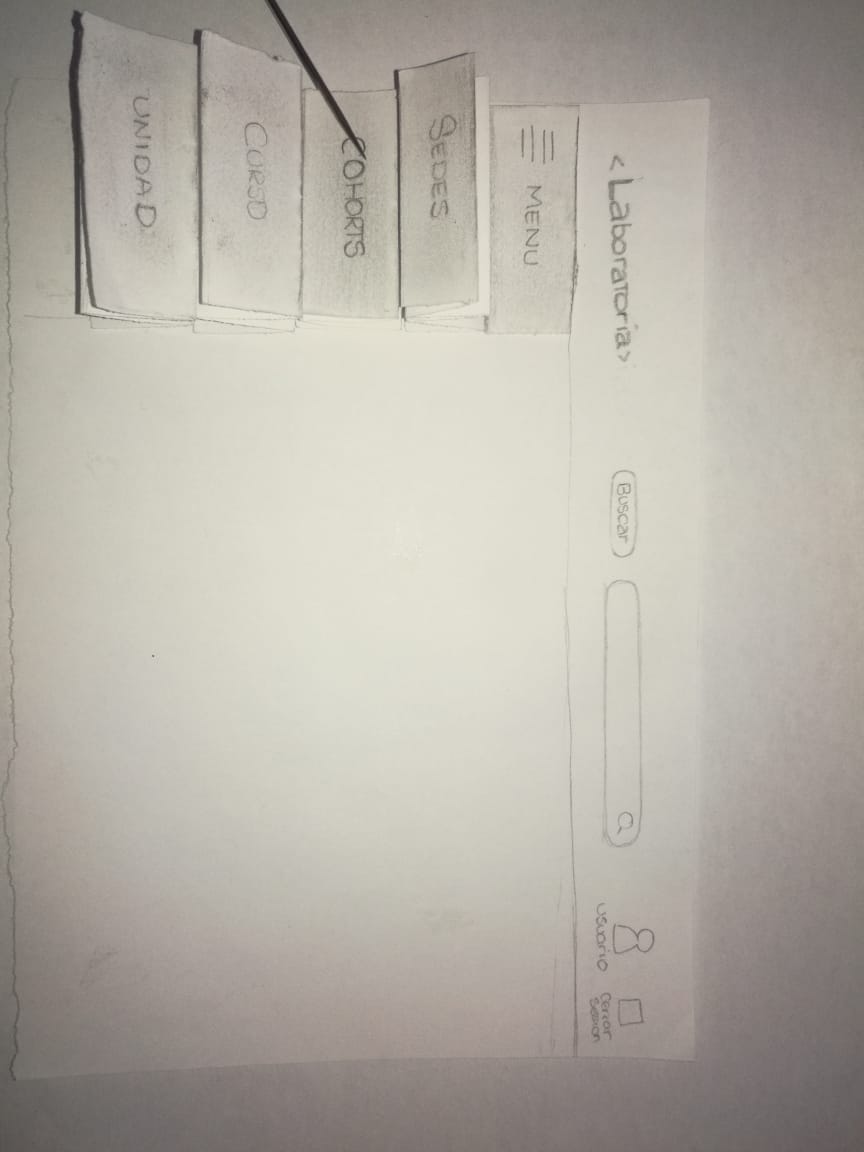 <Laboratoria>
Buscar
Usuario
Cerrar
Sesion
MENU
SEDES
COHORTS
CURSO
UNIDAD